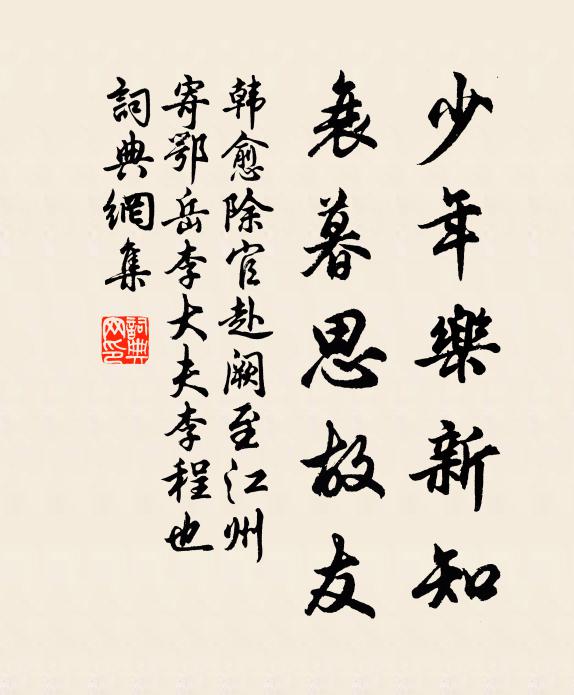 少年樂新知
衰暮思故友
韩愈除官赴阙至江州
寄鄂岳李大夫李程也
詞典網集
詞典网印